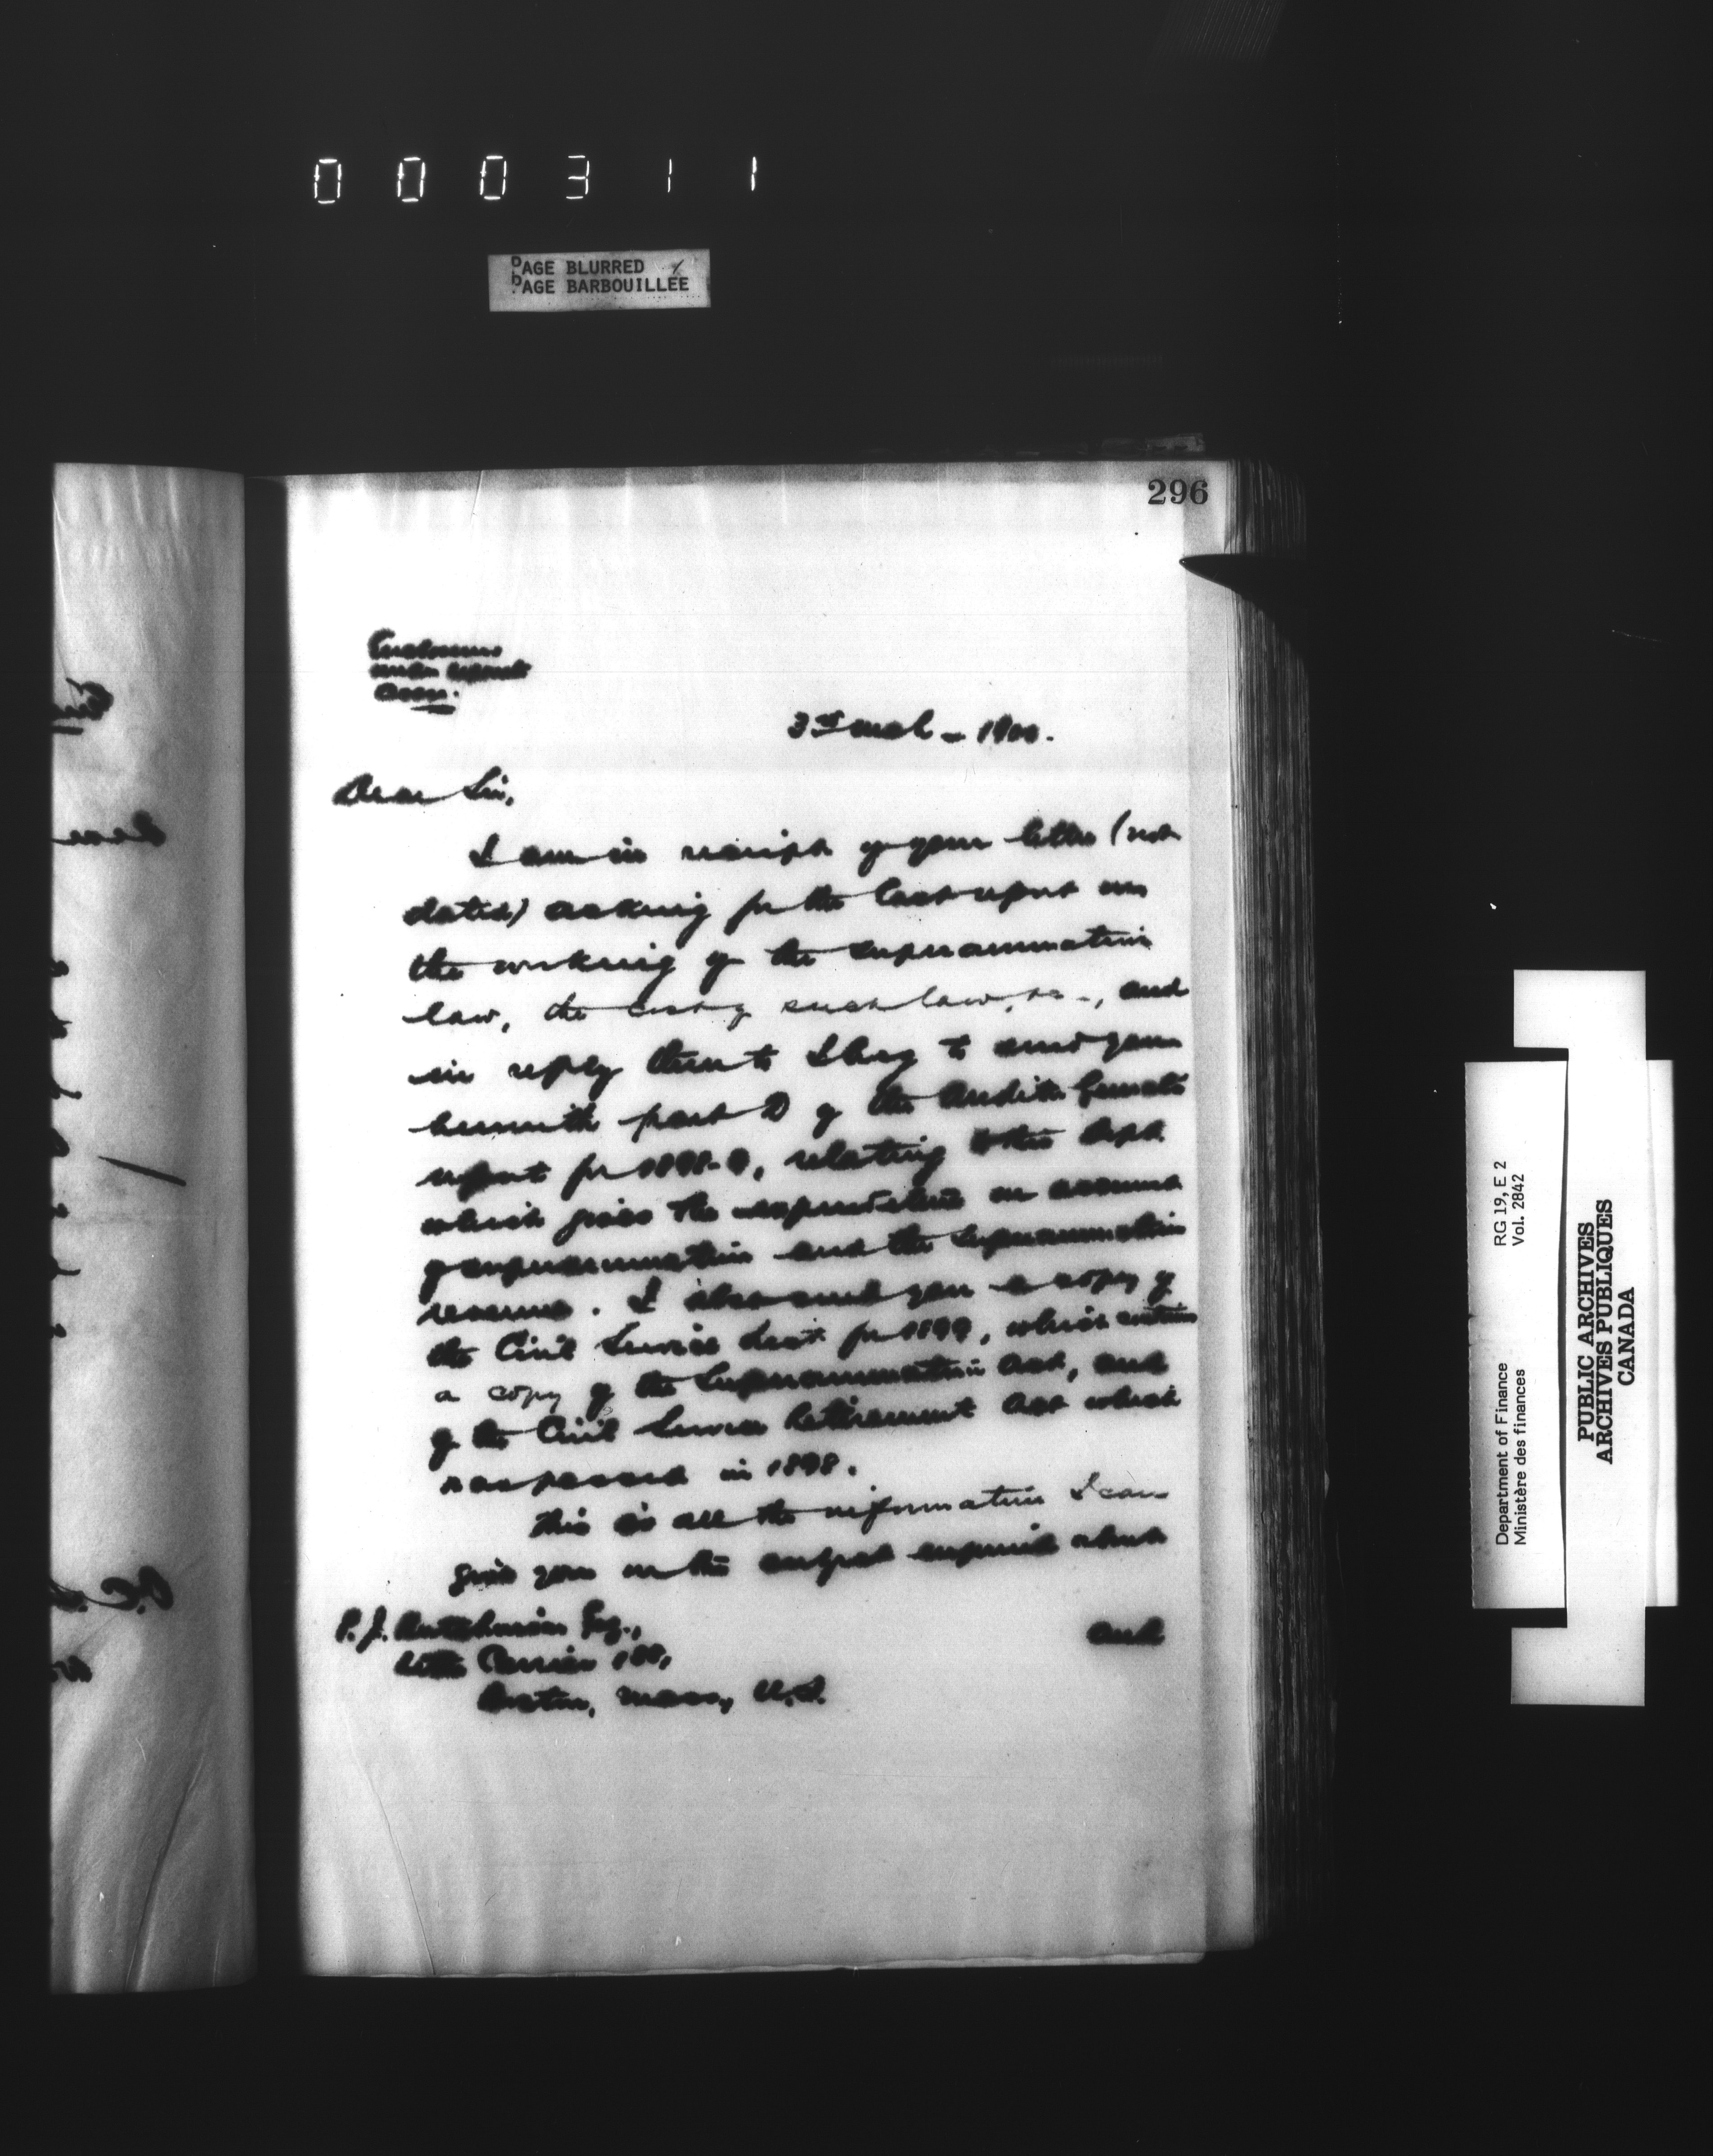 000311
PAGE BLURRED
PAGE BARBOUILLÉE
296
3rd Mch - 1900.
Dear Sir,
I am in receipt of your letter (not
dated) asking for the last report on
the working of the superannuation
law, the cost of such law, &c -, and
in reply thereto I beg to send you
herewith part D of the Auditor General's
report for 1898-9, relating to this Dept.
which gives the expenditure on account
of superannuation and the superannuation
revenue. I also send you a copy of
the Civil Service List for 1899, which contains
a copy of the Superannuation Act, and
of the Civil Service Retirement Act which
was passed in 1898.
This is all the information I can
give you on the subject enquired about
and
P. J. Esq.,
Letter Carrier 180,
Boston, Mass., U.S.
Department of Finance RG 19, E 2
Ministère des finances Vol. 2842
PUBLIC ARCHIVES
ARCHIVES PUBLIQUES
CANADA